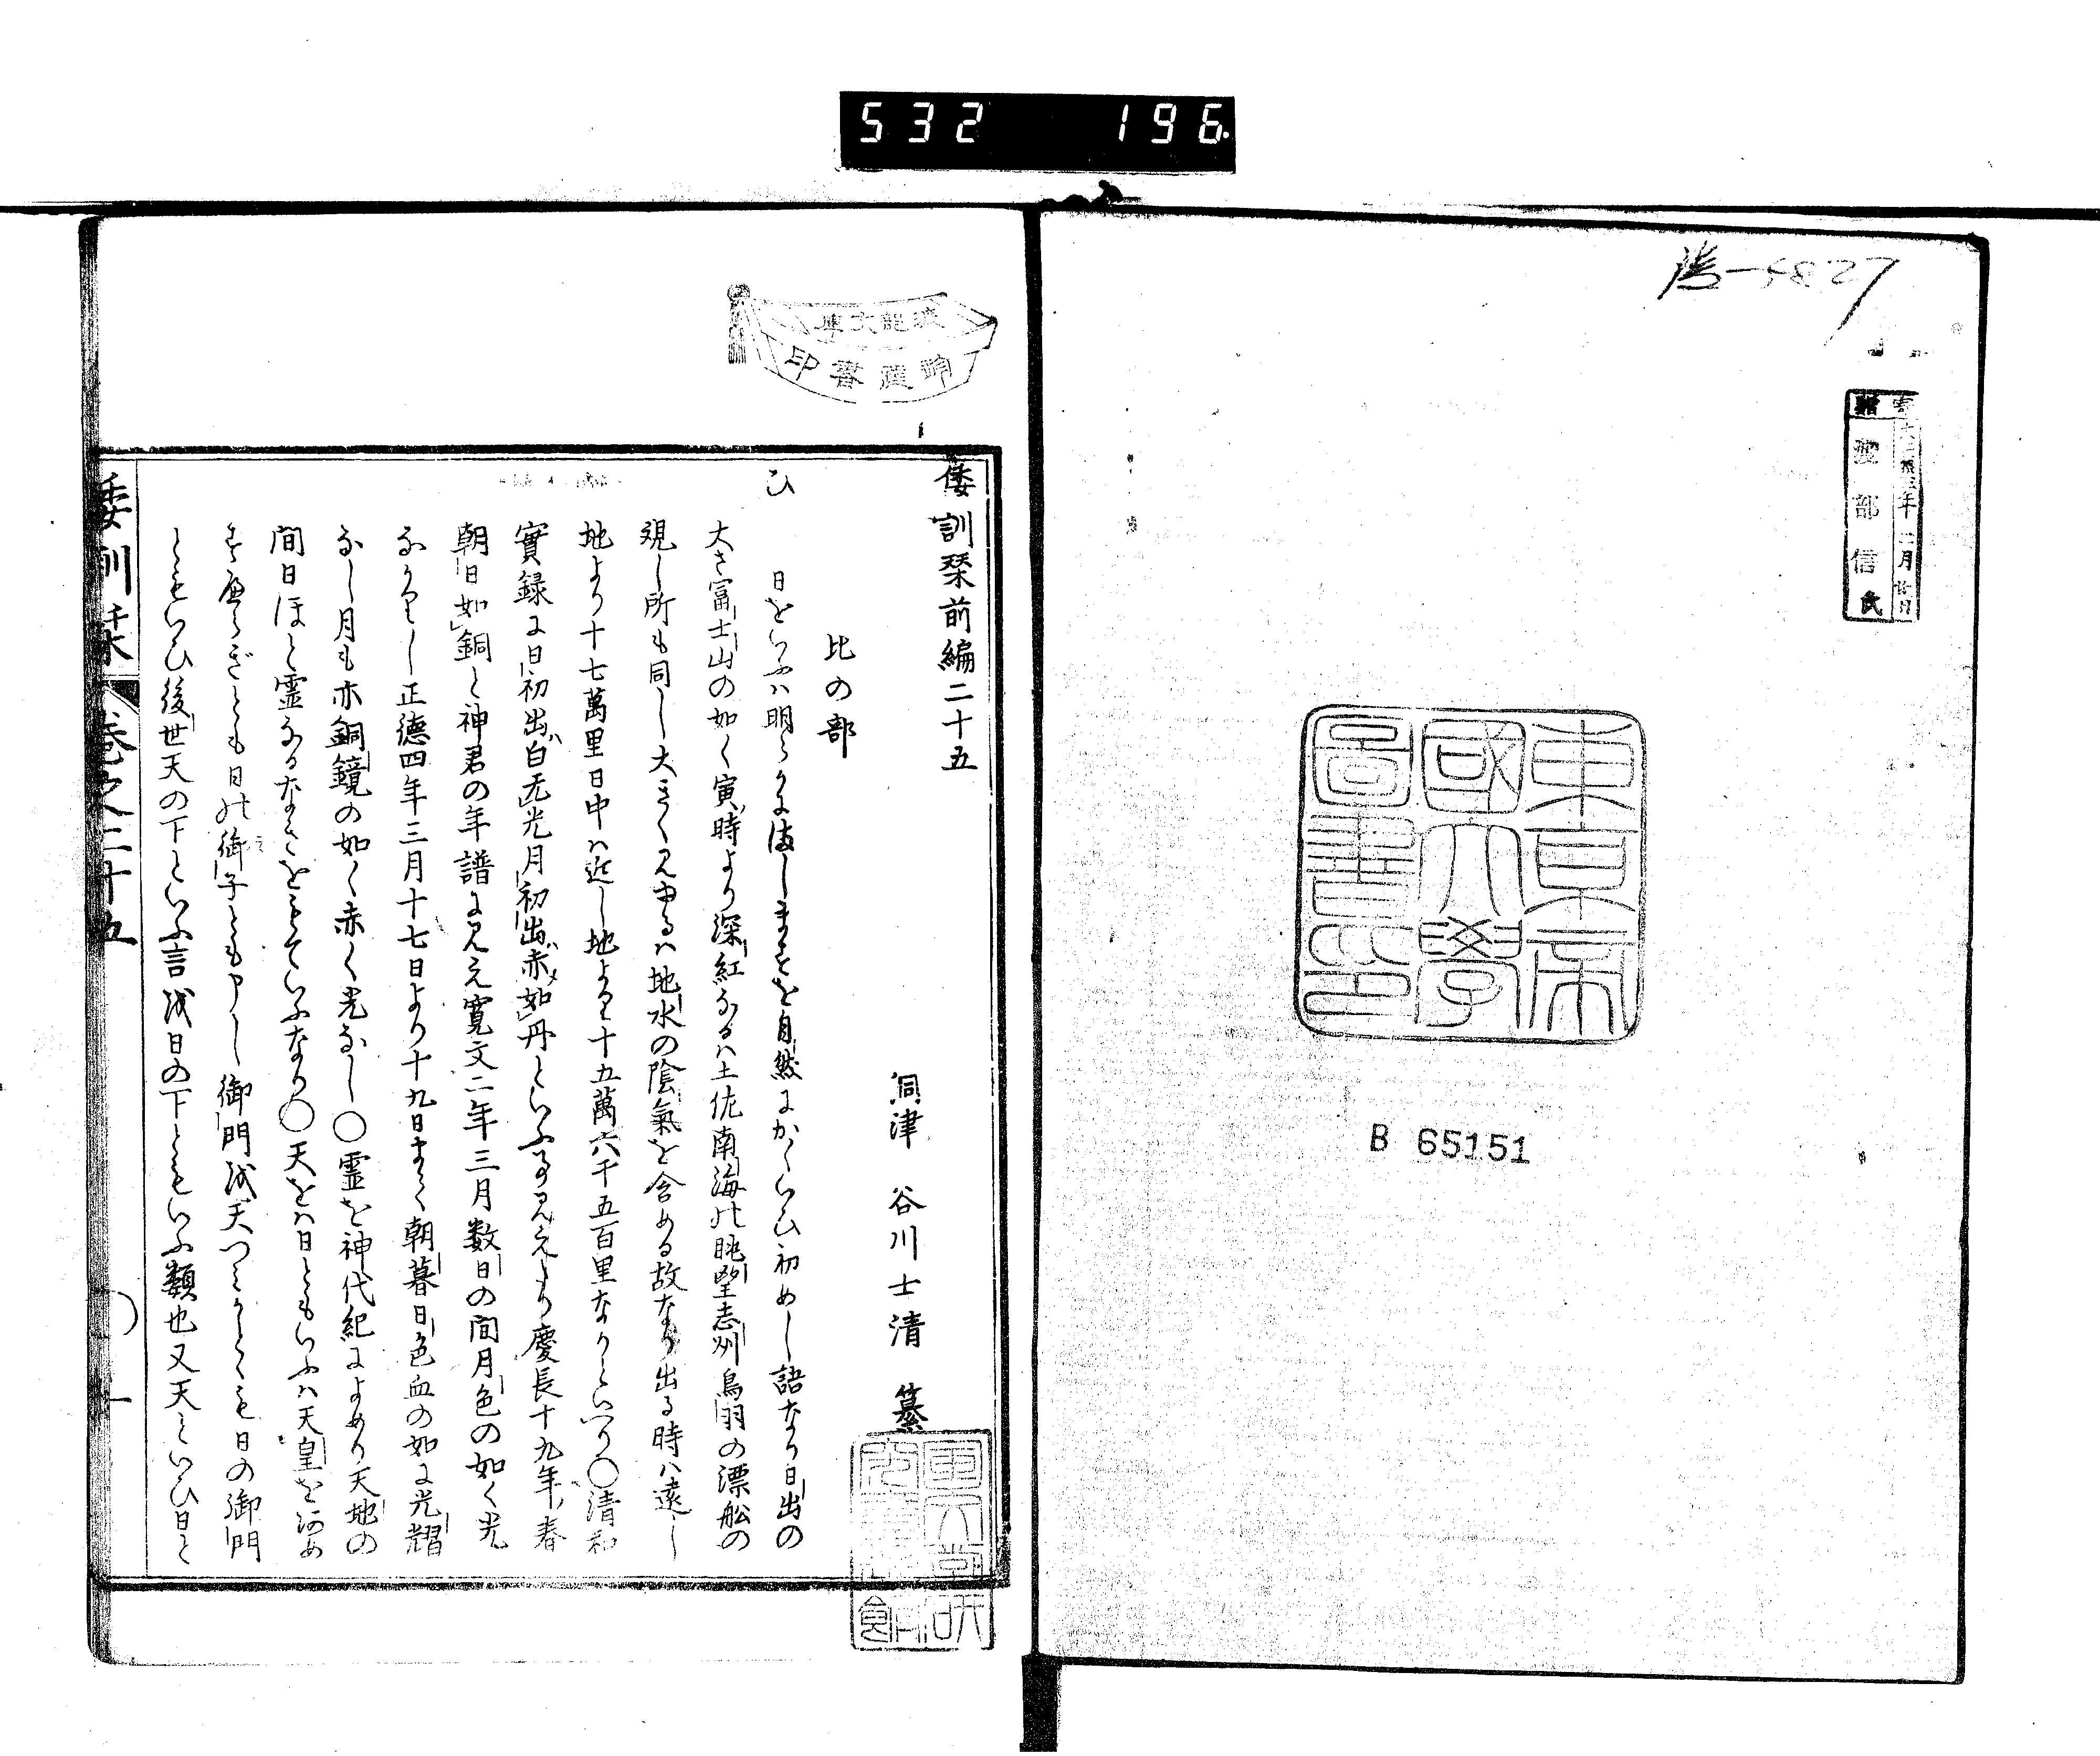 532 196
東京帝
國大學
圖書印
B 65151
倭訓栞前編二十五
洞津 谷川士清 纂
比の部
ひ
日をいふハ明らかにましますを自然にかくいひ初めし語なり日出の
大さ富士山の如く寅時より深紅なるハ土佐南海の眺望志州鳥羽の漂舩の
視し所も同し大きく見ゆるハ地水の陰氣を含める故なり出る時ハ遠し
地より十七萬里日中ハ近し地より十五萬六千五百里なりといへり○清和
實録に日初出白无光月初出赤如丹といふ事見えたり慶長十九年春
朝日如銅と神君の年譜に見え寛文二年三月数日の間月色の如く光
なかりし正徳四年三月十七日より十九日まて朝暮日色血の如に光耀
なし月も亦銅鏡の如く赤く光なし○霊を神代紀によめり天地の
間日ほと霊なるなきをもていふなり○天をハ日ともいふハ天皇を
すへらぎとも日の御子とも申し御門を天つみかとゝも日の御門
ともいひ後世天の下といふ言を日の下ともいふ類也又天といひ日と
倭訓栞 巻之二十五